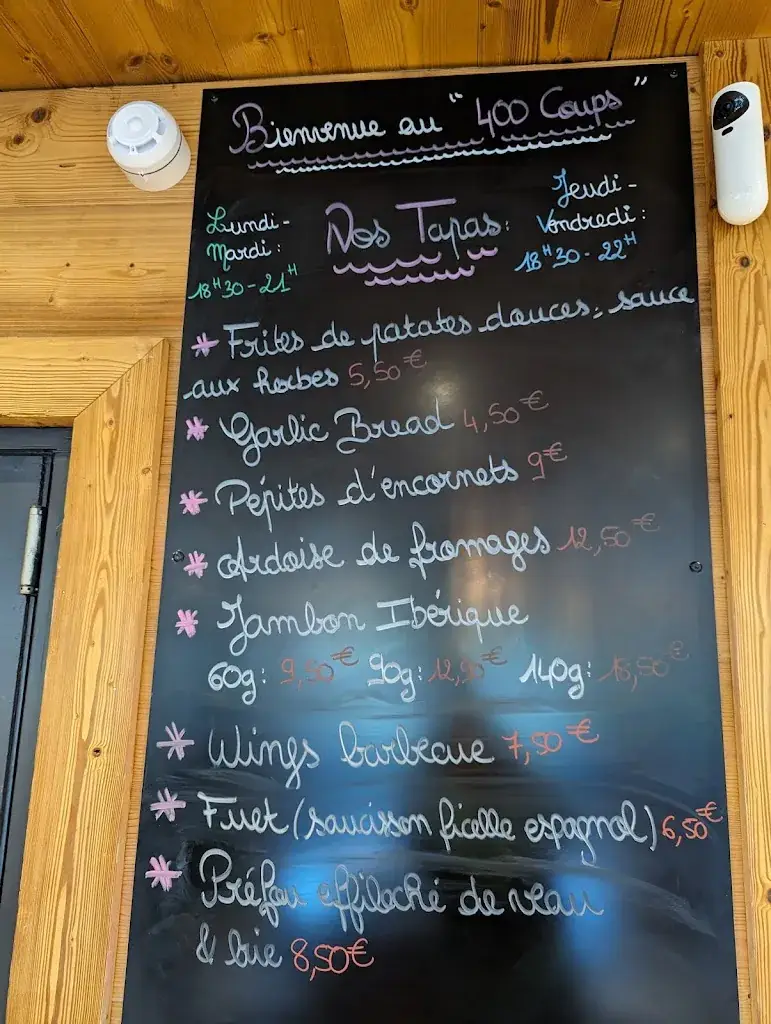 Bienvenue au "400 Coups"
Lundi-
Mardi:
18H30-21H
Nos Tapas:
Jeudi-
Vendredi:
18H30-22H
* Frites de patates douces, sauce
aux herbes 5,50€
* Garlic Bread 4,50€
* Pépites d'encornets 9€
* Ardoise de fromages 12,50€
* Jambon Ibérique
60g: 9,50€ 90g: 12,90€ 140g: 18,50€
* Wings barbecue 7,50€
* Fuet (saucisson ficelle espagnol) 6,50€
* Préfou effiloché de veau
& brie 8,50€